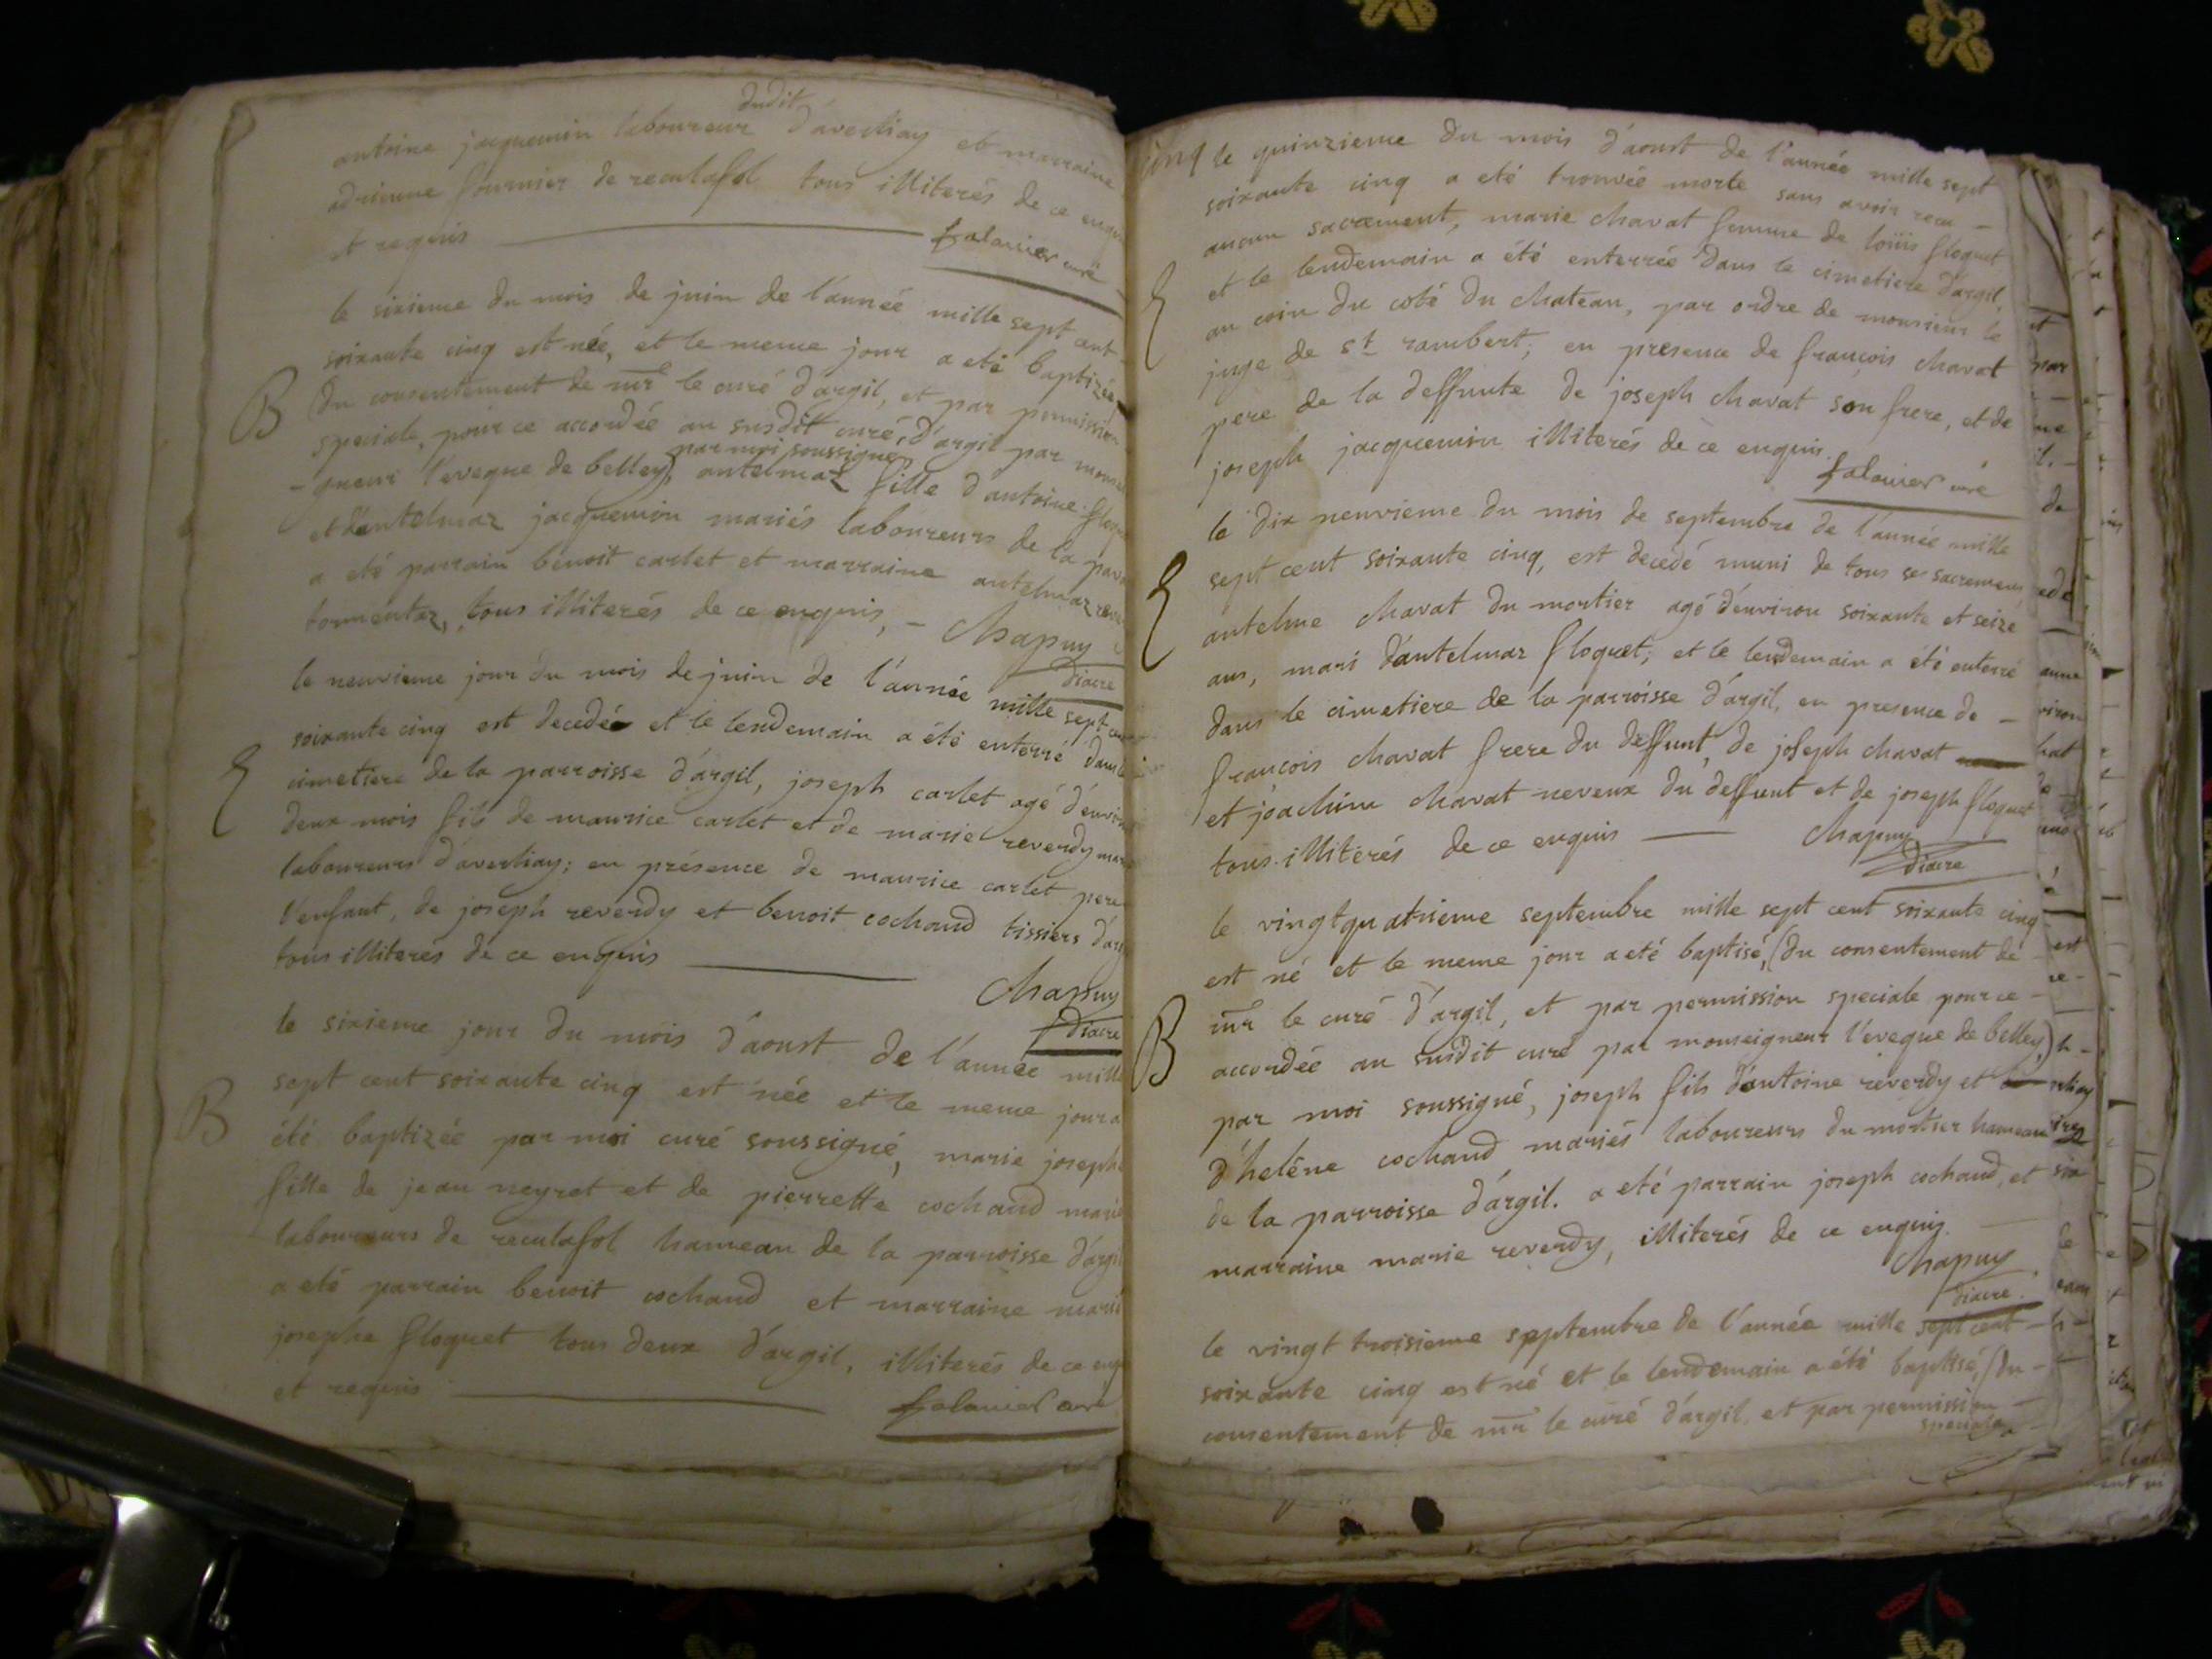 dudit
antoine jacquemin laboureur d'averliay et marraine
adrienne fournier de reculafol tous illiterés de ce enquis
et requis falavier curé
le sixieme du mois de juin de l'année mille sept cent
soixante cinq est née, et le meme jour a eté baptizée
B (du consentement de mr le curé d'argil, et par permission
speciale, pour ce accordée au susdit curé, d'argil par monsei
par moi soussigné
-gneur l'eveque de belley), antelmaz fille d'antoine floquet
et d'antelmaz jacquemin mariés laboureurs de la
a eté parrain benoit carlet et marraine antelmaz
tormentaz, tous illiterés de ce enquis, - Chapuy
diacre
le neuvieme jour du mois de juin de l'année mille sept cent
soixante cinq est decedé et le lendemain a été enterré dans le
E cimetiere de la parroisse d'argil, joseph carlet agé d'environ
deux mois fils de maurice carlet et de marie reverdy
laboureurs d'averliay; en présence de maurice carlet pere
l'enfant, de joseph reverdy et benoit cochand tissiers
tous illiterés de ce enquis
Chapuy
diacre
le sixieme jour du mois d'aoust de l'année mille
sept cent soixante cinq est née et le meme jour a
B été baptizée par moi curé soussigné, marie josephe
fille de jean neyret et de pierrette cochand mariés
laboureurs de reculafol hameau de la parroisse d'argil
a eté parrain benoit cochand et marraine marie
josephe floquet tous deux d'argil, illiterés de ce enquis
et requis falavier curé
cinq le quinzieme du mois d'aoust de l'année mille sept
soixante cinq a eté trouvée morte sans avoir recu -
aucun sacrement, marie chavat femme de loüis floquet
E et le lendemain a été enterrée dans le cimetiere d'argil
au coin du coté du chateau, par ordre de monsieur le
juge de st rambert; en presence de françois chavat
pere de la deffunte de joseph chavat son frere, et de
joseph jacquemin illiterés de ce enquis.
falavier curé
le dix neuvieme du mois de septembre de l'année mille
sept cent soixante cinq, est decedé muni de tous ses sacremens
E antelme chavat du mortier agé d'environ soixante et seize
ans, mari d'antelmaz floquet; et le lendemain a été enterré
dans le cimetiere de la parroisse d'argil, en presence de -
françois chavat frere du deffunt, de joseph chavat
et joachim chavat neveux du deffunt et de joseph floquet
tous illiterés de ce enquis Chapuy
diacre
le vingtquatrieme septembre mille sept cent soixante cinq
est né et le meme jour a eté baptisé, (du consentement de
B mr le curé d'argil, et par permission speciale pour ce -
accordée au susdit curé par monseigneur l'eveque de belley,)
par moi soussigné, joseph fils d'antoine reverdy et
d'helène cochand mariés laboureurs du mortier hameau
de la parroisse d'argil. a eté parrain joseph cochand, et
marraine marie reverdy, illiterés de ce enquis.
Chapuy
diacre.
le vingt troisieme septembre de l'année mille sept cent -
soixante cinq est né et le lendemain a été baptisé, (du -
consentement de mr le curé d'argil, et par permission -
speciale